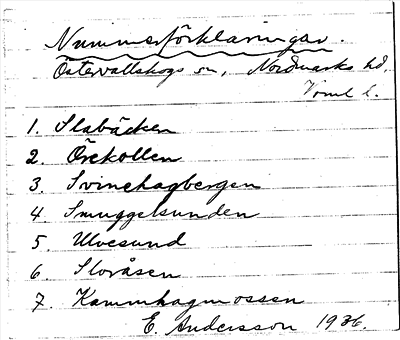 Nummerförklaringar.
Östervallskogs sn, Nordmarks hd,
Värml l.
1. Slabäcken
2. Örekollen
3. Svinehagbergen
4. Smuggelsunden
5. Ulvesund
6. Storåsen
7. Kammhagmossen
E. Andersson 1936.